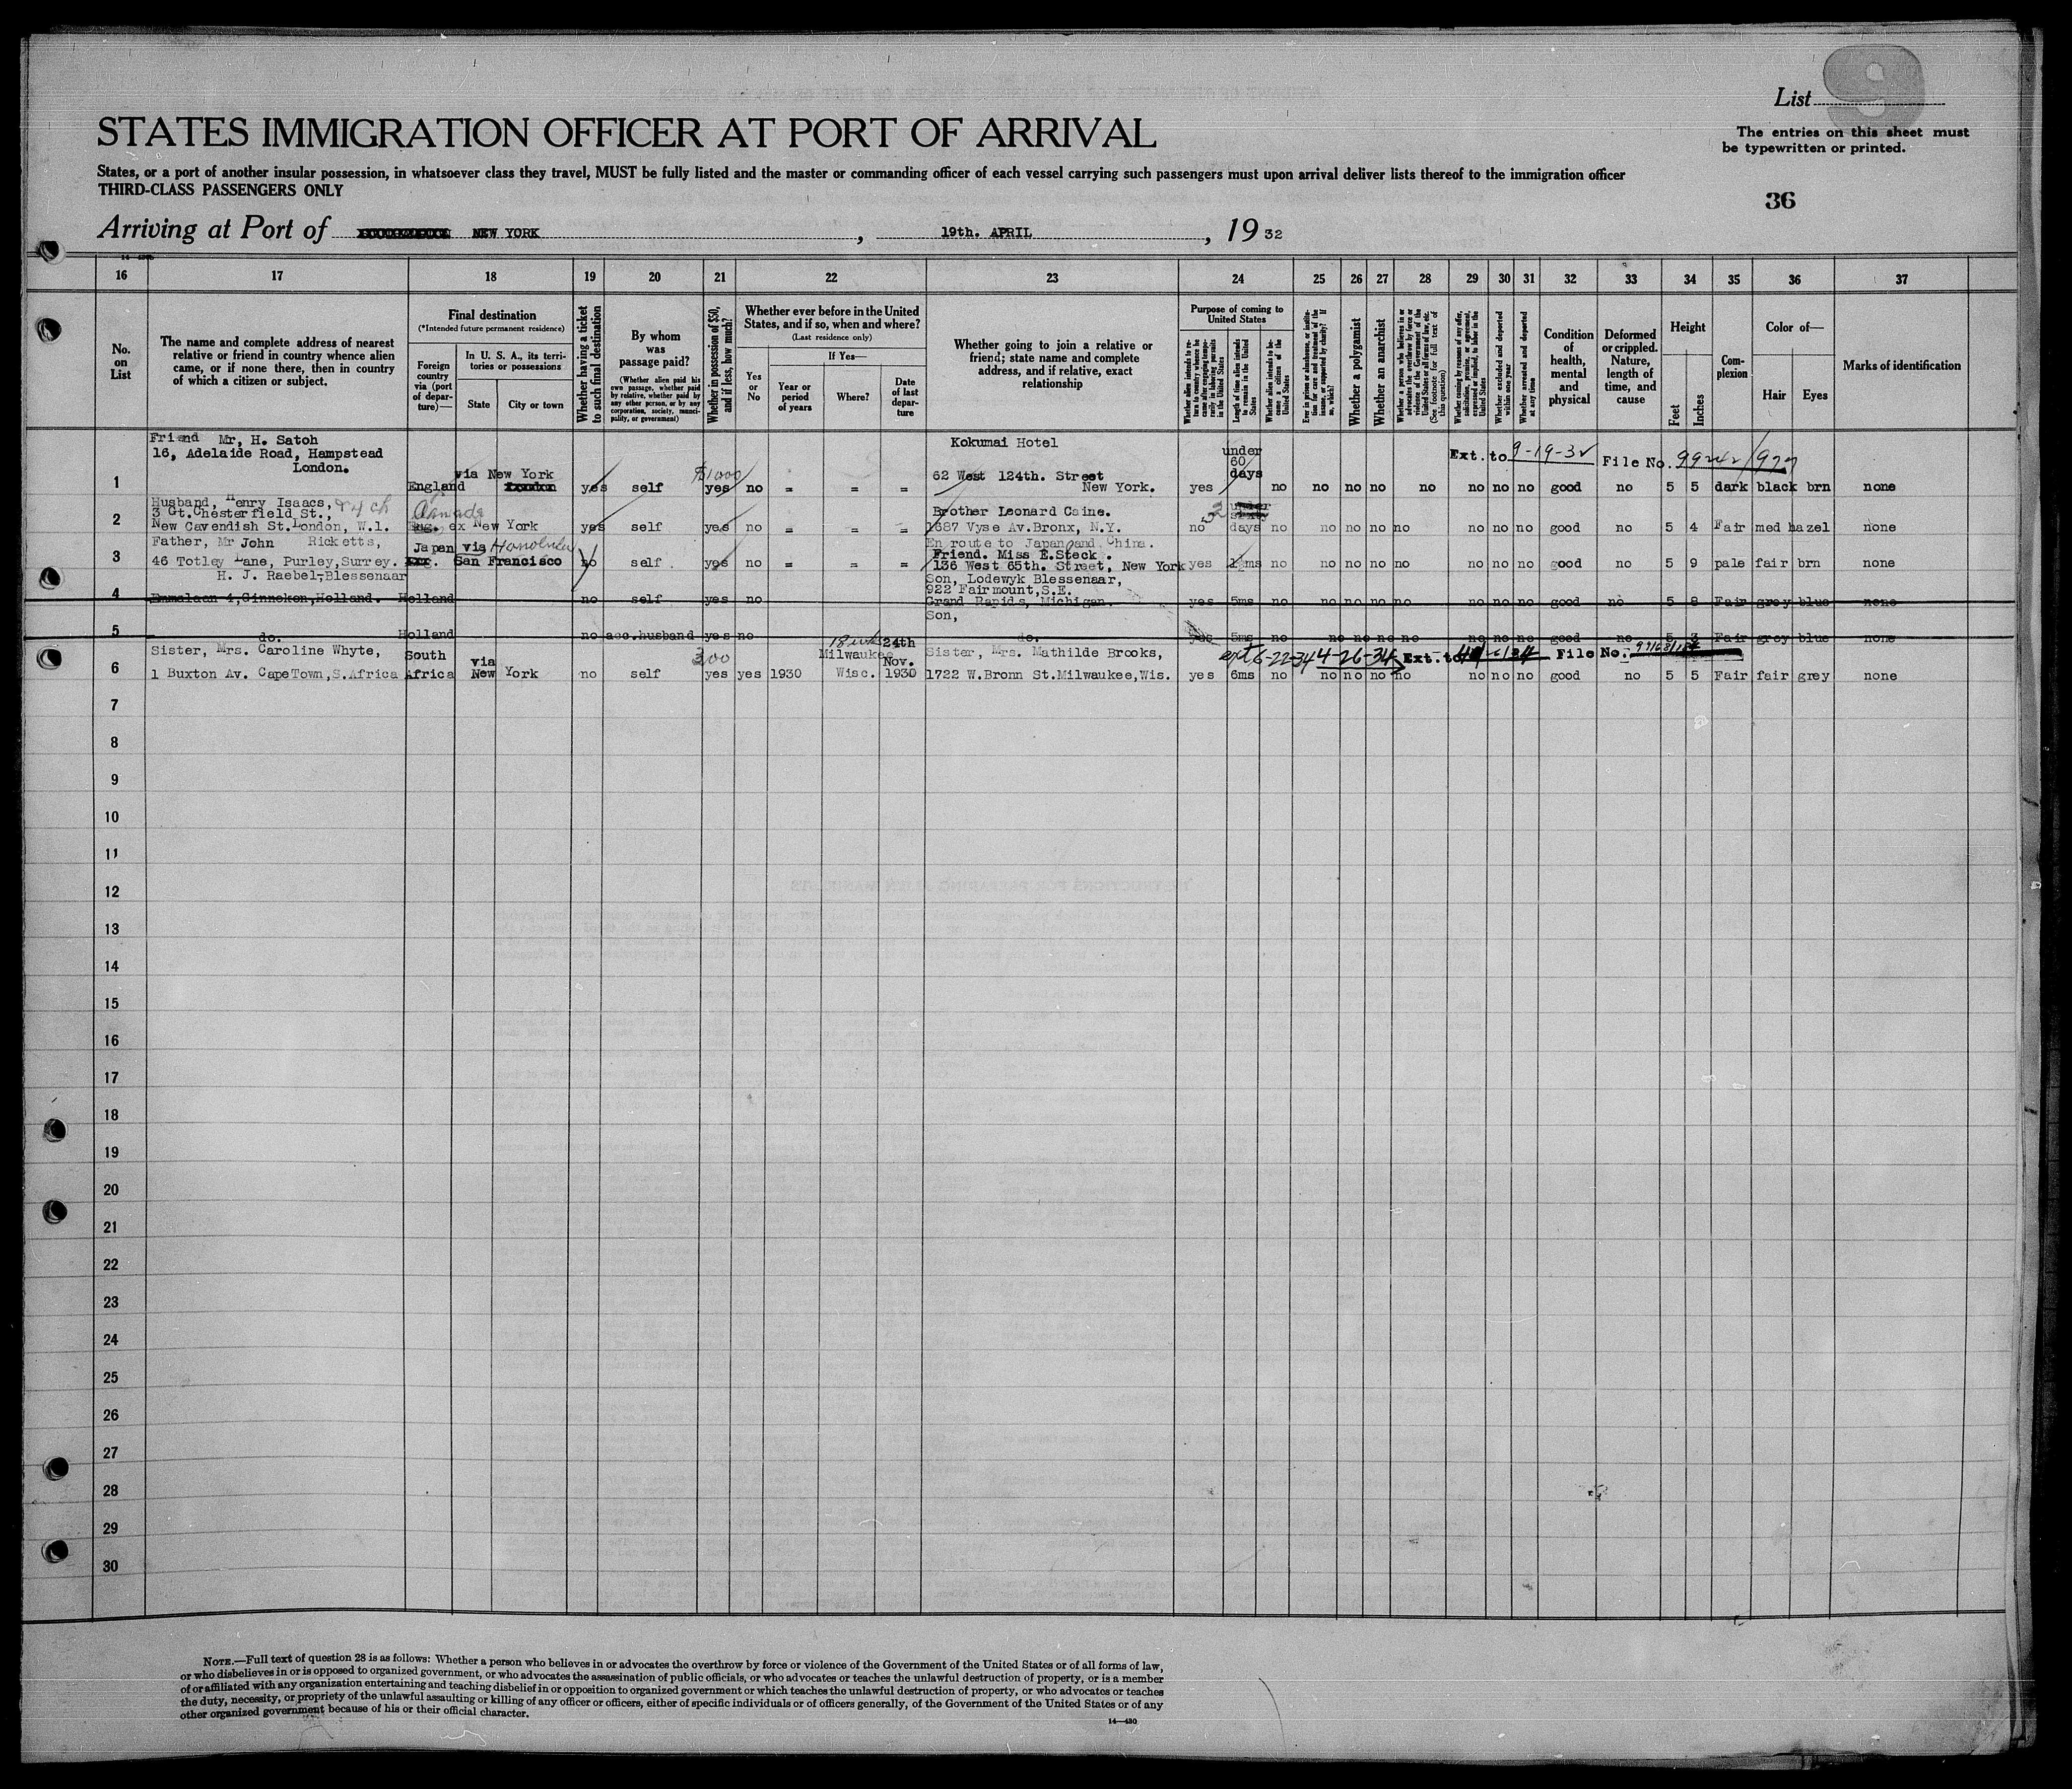 List
9
STATES IMMIGRATION OFFICER AT PORT OF ARRIVAL
The entries on this sheet must
be typewritten or printed.
States, or a port of another insular possession, in whatsoever class they travel, MUST be fully listed and the master or commanding officer of each vessel carrying such passengers must upon arrival deliver lists thereof to the immigration officer
THIRD-CLASS PASSENGERS ONLY
36
Arriving at Port of NEW YORK, 19th. APRIL, 19 32
16 17 18 19 20 21 22 23 24 25 26 27 28 29 30 31 32 33 34 35 36 37
No. on List
The name and complete address of nearest
relative or friend in country whence alien
came, or if none there, then in country
of which a citizen or subject.
Final destination
(*Intended future permanent residence)
Foreign country via (port of departure)—
In U. S. A., its territories or possessions
State
City or town
Whether having a ticket to such final destination
By whom was passage paid?
(Whether alien paid his own passage, whether paid by relative, whether paid by any other person, or by any corporation, society, municipality, or government)
Whether in possession of $50, and if less, how much?
Whether ever before in the United States, and if so, when and where?
(Last residence only)
Yes or No
If Yes—
Year or period of years
Where?
Date of last departure
Whether going to join a relative or
friend; state name and complete
address, and if relative, exact
relationship
Purpose of coming to United States
Length of time alien intends to remain in the United States
Whether alien intends to become a citizen of the United States
Whether a polygamist
Whether an anarchist
Whether excluded and deported within one year
Whether arrested and deported at any time
Condition of health, mental and physical
Deformed or crippled. Nature, length of time, and cause
Height
Feet
Inches
Complexion
Color of—
Hair
Eyes
Marks of identification
Friend Mr, H. Satoh
16, Adelaide Road, Hampstead
London.
Kokumai Hotel
under 60 days
Ext. to 9-19-32 File No. 99242/977
1 England via New York London yes self $1000 yes no = = = 62 West 124th. Street New York. yes no no no no no no no no good no 5 5 dark black brn none
Husband, Henry Isaacs,
3 Gt. Chesterfield St.,
2 New Cavendish St. London, W.1. Canada Eng. ex New York yes self yes no = = = Brother Leonard Caine. 1687 Vyse Av. Bronx, N.Y. no days no no no no no no no no good no 5 4 Fair med hazel none
Father, Mr John Ricketts,
3 46 Totley Lane, Purley, Surrey. Japan via Honolulu San Francisco no self yes no = = = En route to Japan and China. Friend. Miss E. Steck. 136 West 65th. Street, New York yes ms no no no no no no no no good no 5 9 pale fair brn none
H. J. Raebel-Blessenaar
4 Emmalaan 4, Ginneken, Holland. Holland no self yes no Son, Lodewyk Blessenaar, 922 Fairmount, S.E. Grand Rapids, Michigan. yes 5ms no no no no no no no no good no 5 8 Fair grey blue none
5 do. Holland no acc. husband yes no Son, do. yes 5ms no no no no no no no no good no 5 3 Fair grey blue none
Sister, Mrs. Caroline Whyte,
6 1 Buxton Av. CapeTown, S.Africa South Africa via New York no self 300 yes yes 1930 Milwaukee Wisc. 24th Nov. 1930 Sister, Mrs. Mathilde Brooks, 1722 W.Bronn St. Milwaukee, Wis. yes 6ms no no no no no no no no good no 5 5 Fair fair grey none
ext 6-22-34 4-26-34 Ext. to File No.
7
8
9
10
11
12
13
14
15
16
17
18
19
20
21
22
23
24
25
26
27
28
29
30
NOTE.—Full text of question 28 is as follows: Whether a person who believes in or advocates the overthrow by force or violence of the Government of the United States or of all forms of law,
or who disbelieves in or is opposed to organized government, or who advocates the assassination of public officials, or who advocates or teaches the unlawful destruction of property, or is a member
of or affiliated with any organization entertaining and teaching disbelief in or opposition to organized government or which teaches the unlawful destruction of property, or who advocates or teaches
the duty, necessity, or propriety of the unlawful assaulting or killing of any officer or officers, either of specific individuals or of officers generally, of the Government of the United States or of any
other organized government because of his or their official character.
14—430